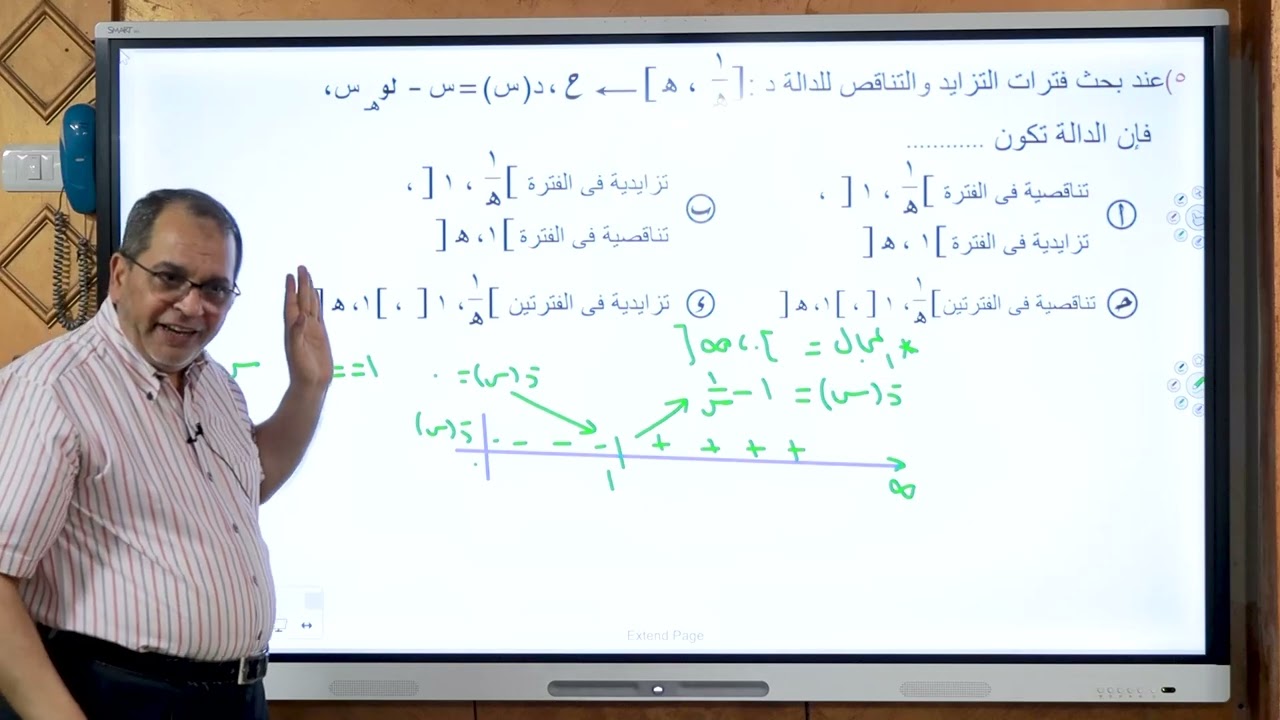 SMART
٥) عند بحث فترات التزايد والتناقص للدالة د : [١/ه ، ه] ← ح ، د(س) = س - لوه س،
فإن الدالة تكون ............
أ تناقصية فى الفترة ]١/ه ، ١ [ ،
تزايدية فى الفترة ]١ ، ه [
ب تزايدية فى الفترة ]١/ه ، ١ [ ،
تناقصية فى الفترة ]١، ه [
ج تناقصية فى الفترتين ]١/ه، ١ [ ، ]١، ه [
د تزايدية فى الفترتين ]١/ه، ١ [ ، ]١، ه [
* المجال = ]٠، ∞[
دَ(س) = ١ - ١/س
دَ(س) = ٠
س = ١
دَ(س)
- - - - + + + +
٠ ١ ∞
Extend Page